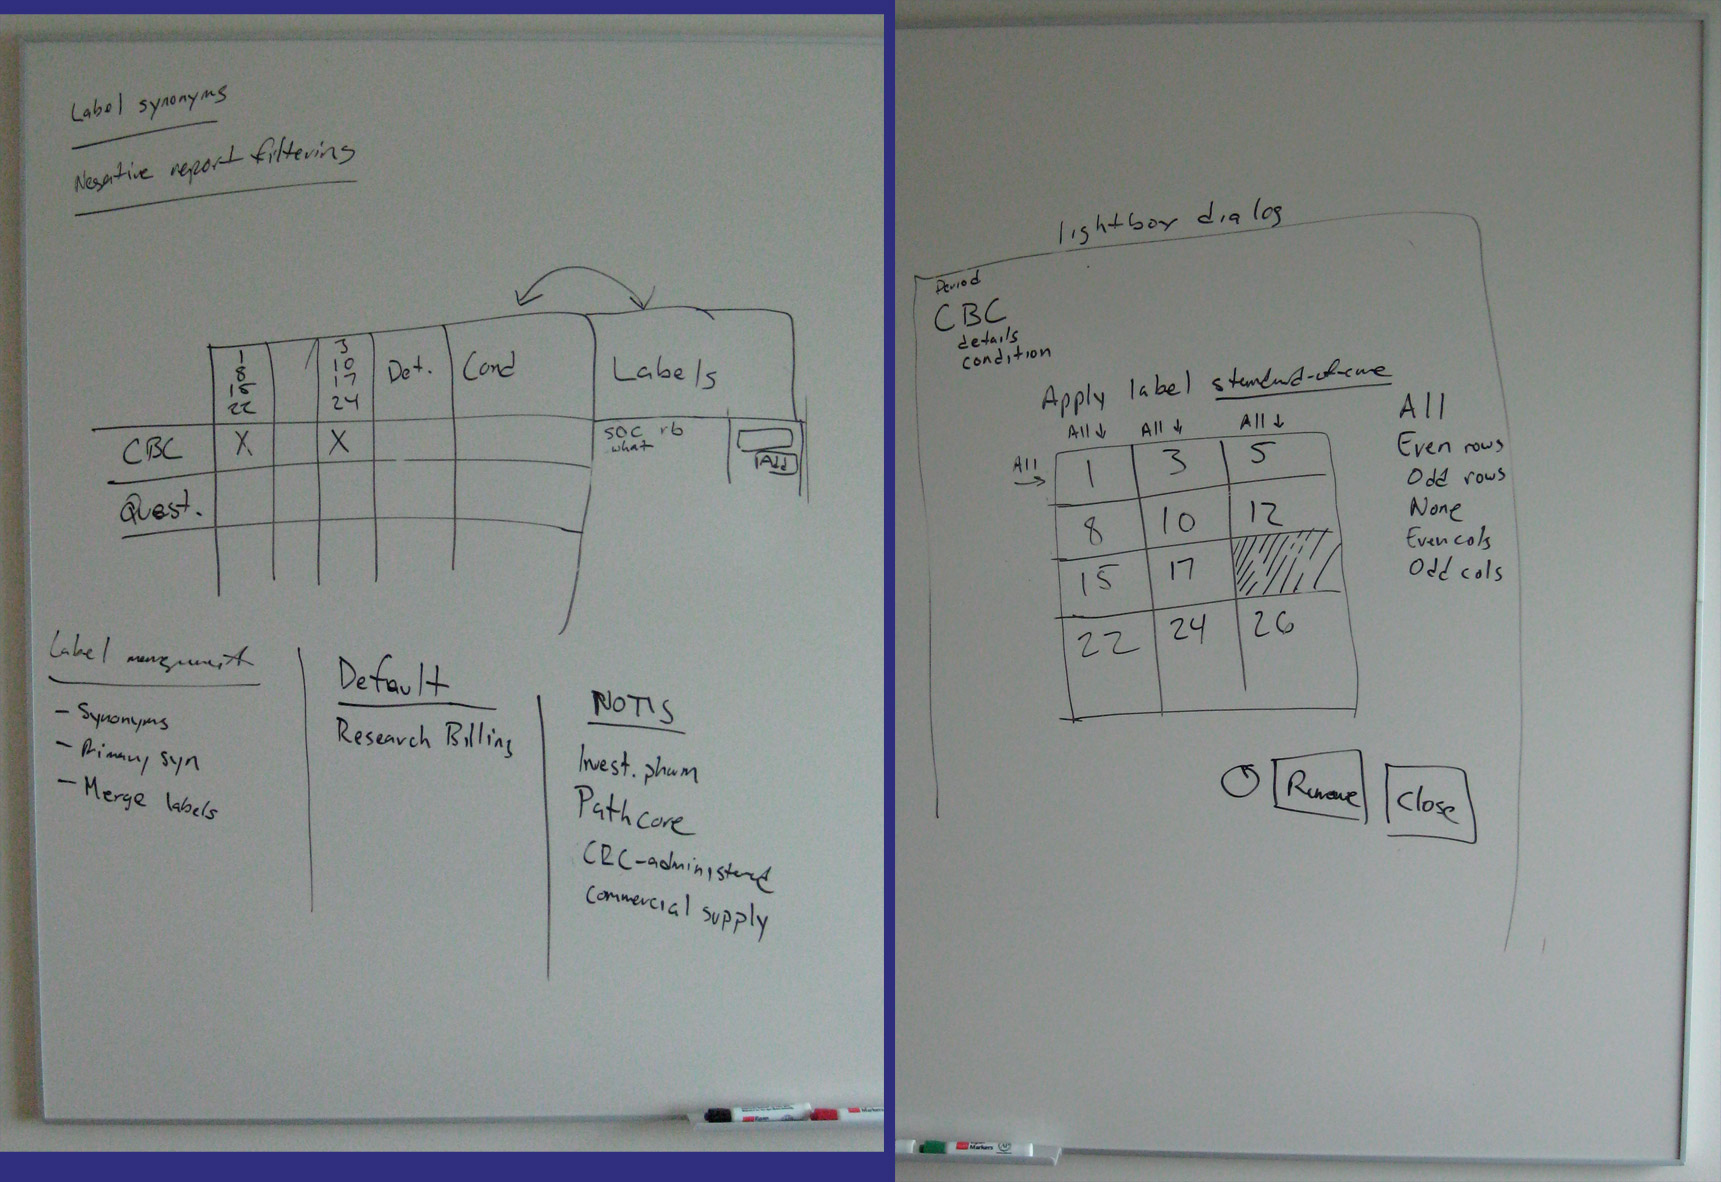 Label synonyms
Negative report filtering
1
8
15
22
3
10
17
24
Det.
Cond
Labels
CBC
X
X
SOC rb
what
Add
Quest.
Label management
- Synonyms
- Primary syn
- Merge labels
Default
Research Billing
NOTIS
Invest. pharm
Path core
CRC-administered
Commercial supply
lightbox dialog
Period
CBC
details
condition
Apply label standard-of-care
All ↓ All ↓ All ↓
All →
1 3 5
8 10 12
15 17
22 24 26
All
Even rows
Odd rows
None
Even cols
Odd cols
Remove
Close
Markers